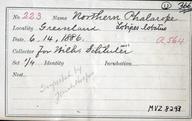 No. 223 Name Northern Phalarope
Locality Greenland Lobipes lobatus
Date 6.14,1886. A 564
Collector For Wilh. Schlüter
Set 1/4 Identity Incubation
Nest
MVZ 8293